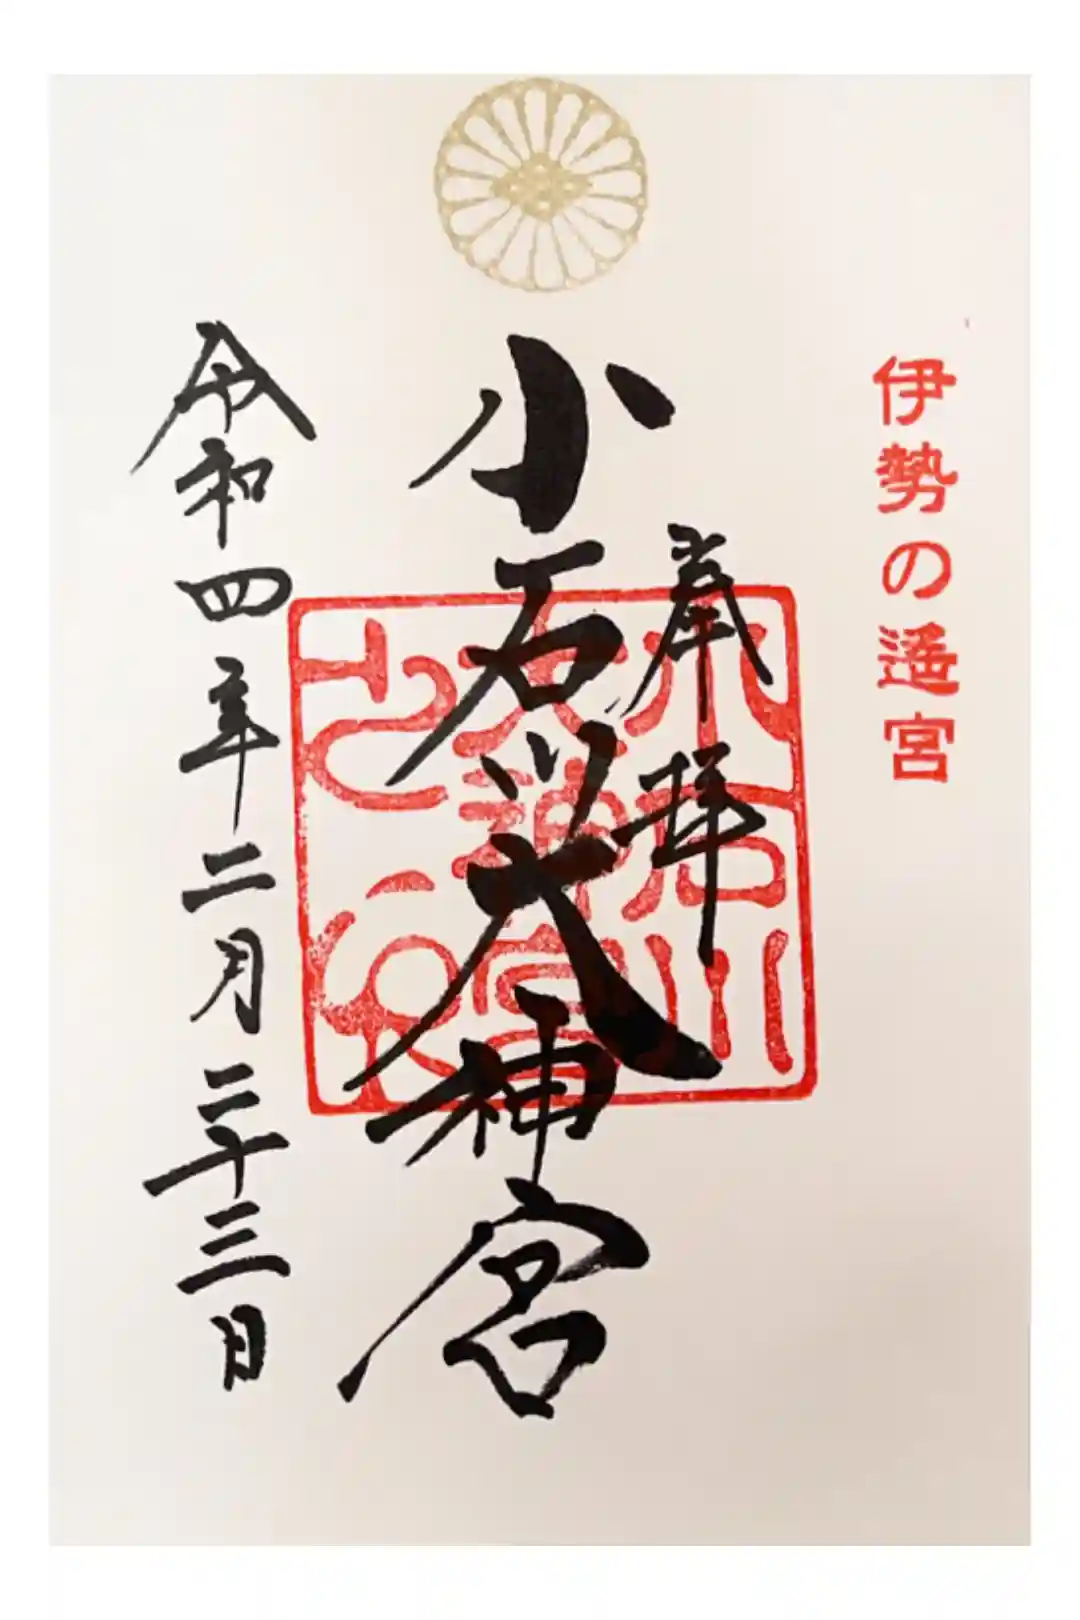 伊勢の遥宮
奉拝
小石川大神宮
小石川大神宮之印
令和四年二月二十三日